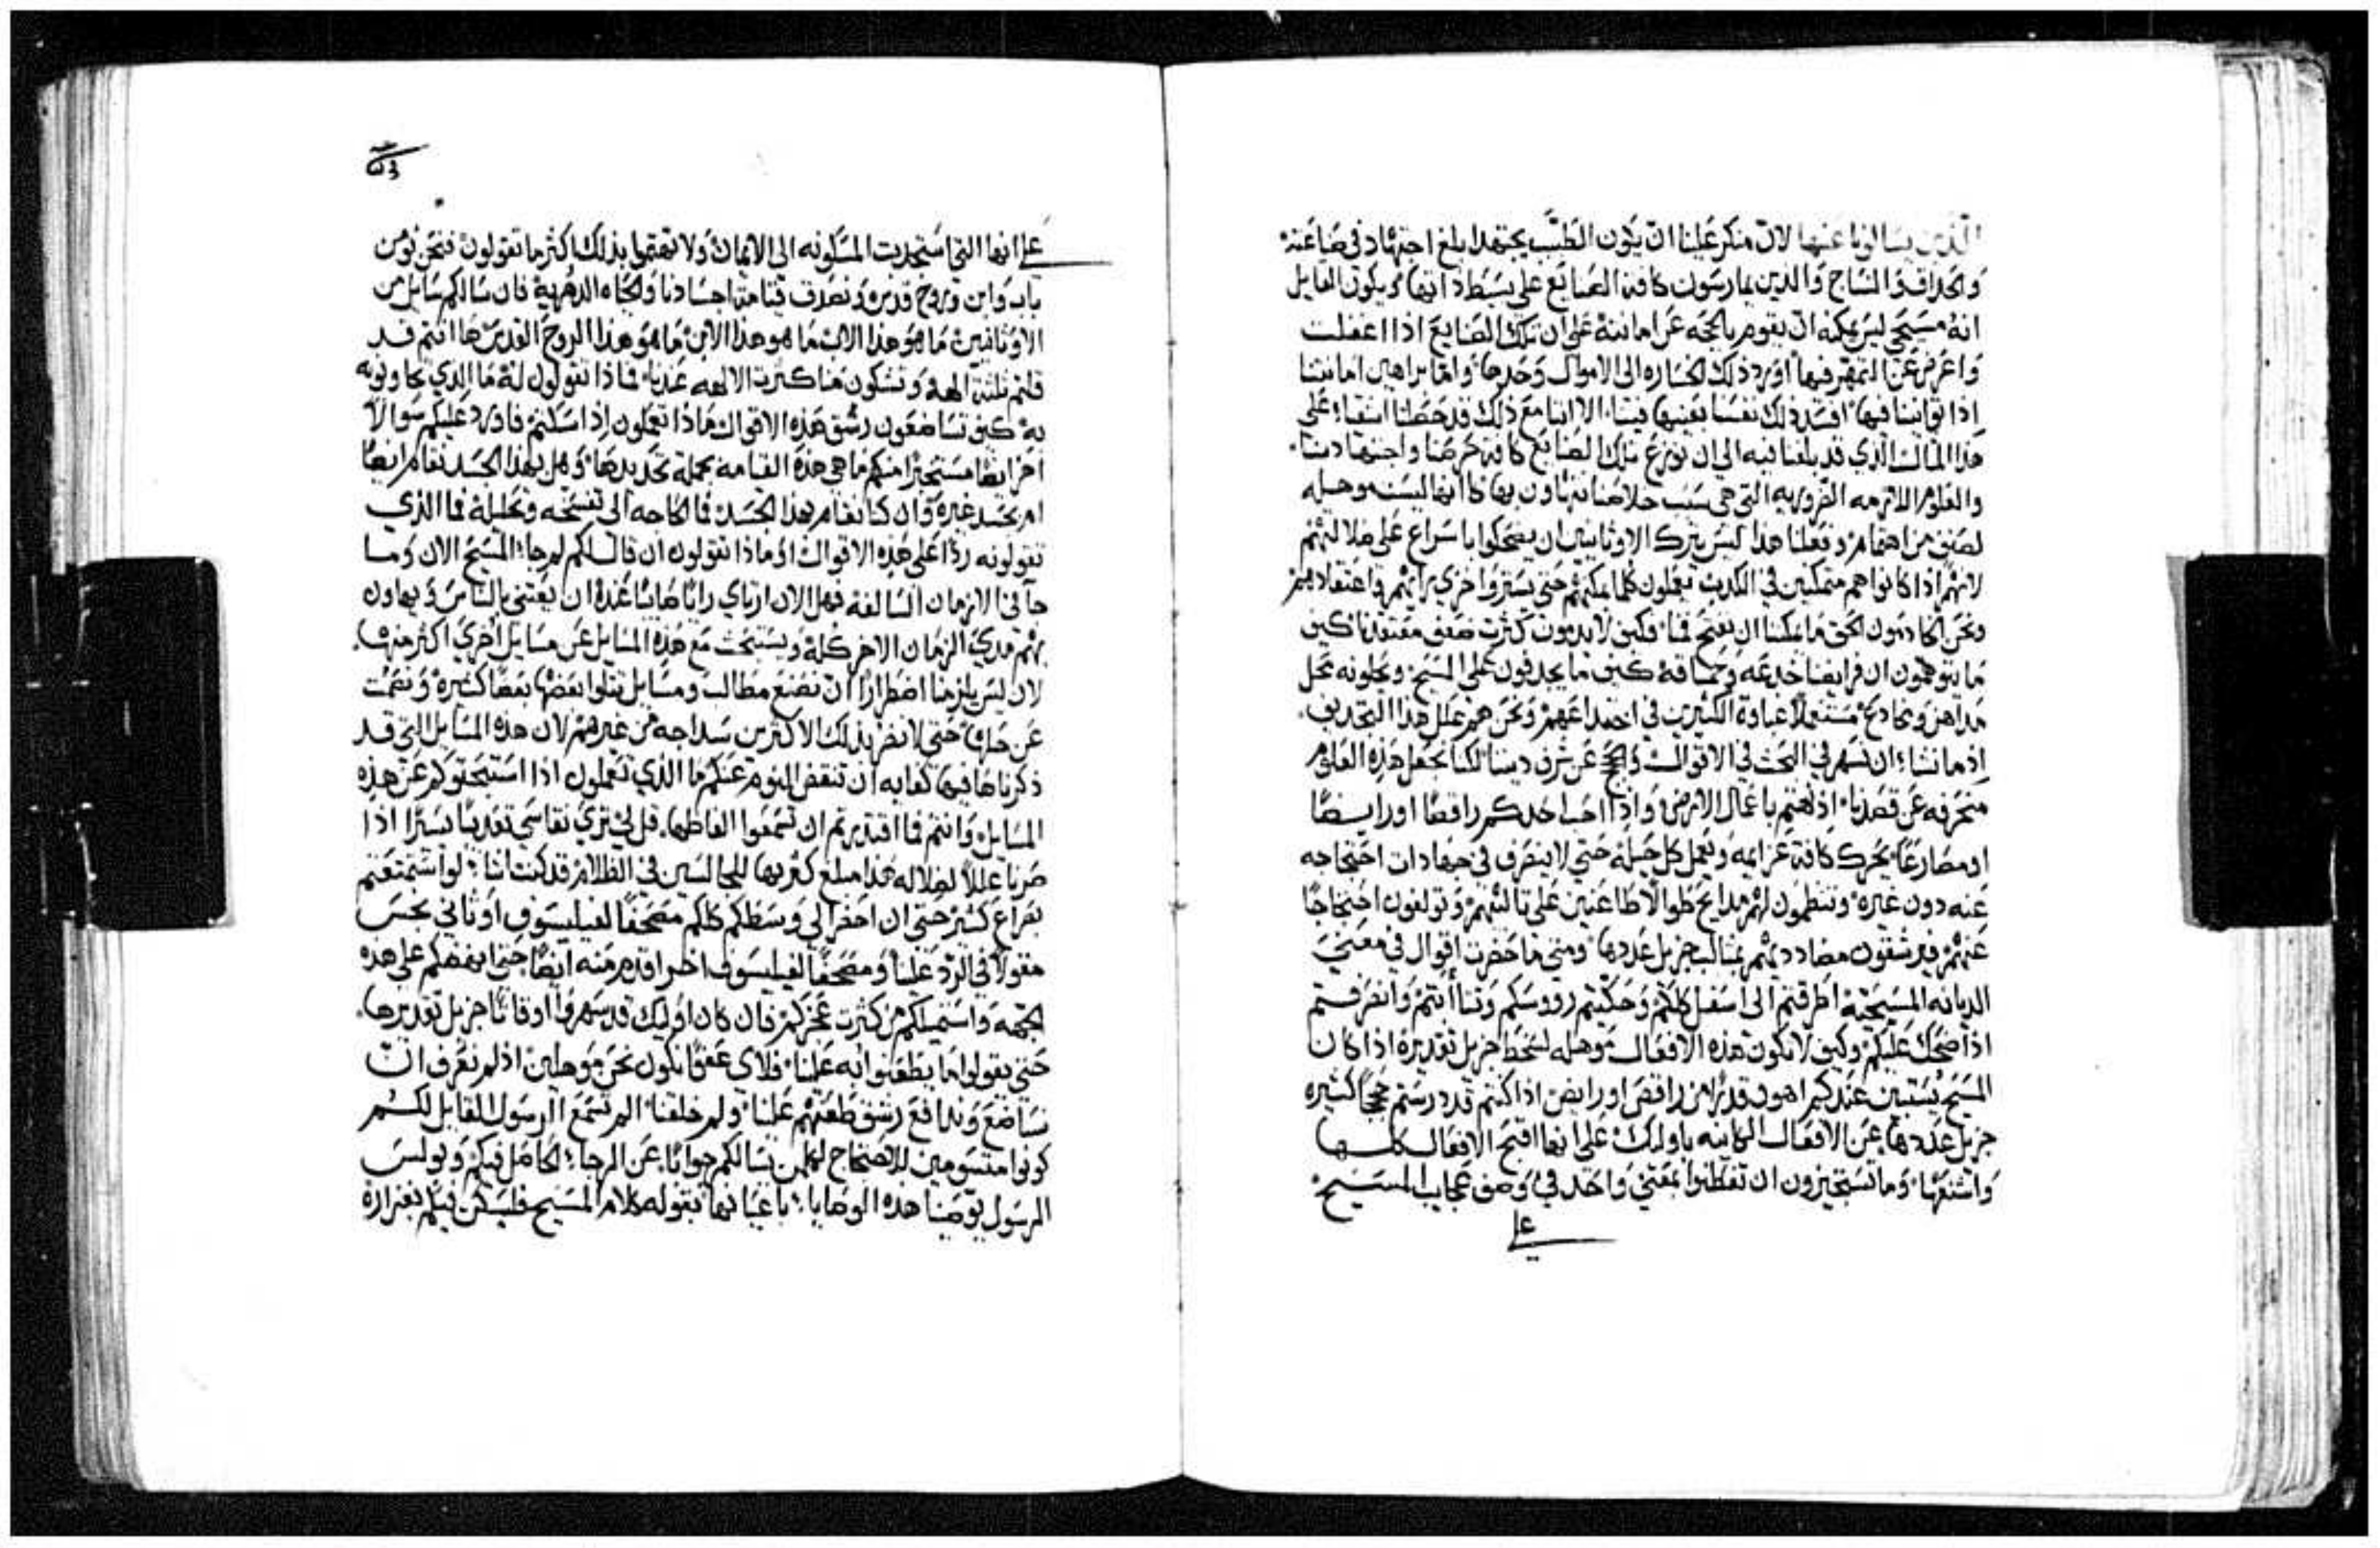 الذين يسالونا عنها لان منكر علينا ان يكون الطبيب يجتهد ابلغ اجتهاد في صناعته
والنساج والذين يمارسون كافة الصنايع على بسط ذاتها ويكون القايل
انه مسيحي ليس يمكنه ان يقوم بالحجه عن امانته على ان تلك الصنايع اذا اغفلت
واعرض عن التمهر فيها اورد ذلك الخساره الى الاموال وحدها واما براهين امانتنا
اذا توانينا فيها افسد ذلك نفسا بعينها فينا الا اننا مع ذلك قد حصلنا اشقيا على
هذا المثال الذي قد بلغنا فيه الى ان نوزع تلك الصنايع كافة حرصنا واجتهادنا
والعلوم اللازمه الضروريه التي هي سبب خلاصنا نتهاون بها كانها ليست موهله
لصنف من اهتمام وفعلنا هذا ليس يترك الاوثانيين ان يضحكوا باسراع على ضلالتهم
لانهم اذا كانوا هم متمكنين في الكذب يعملون كلما يمكنهم حتى يستروا خزي رايهم واعتقادهم
ونحن الخادمون الحق ما يمكننا ان نفتح فما فكيف لا يدينون كثرت ضعف معتقدنا كيف
ما يتوهمون ان فرايضنا خديعه وحماقة كيف ما يجدفون على المسيح ويحلونه محل
مداهن ومخادع مستعملا غباوة الكثيرين في اختداعهم ونحن هم علل هذا التجديف
اذ ما نشاء ان نسهر في البحث في الاقوال عن شرف ديننا لكنا نجعل هذه العلوم
منحرفه عن قصدنا اذ نهتم باعمال الارض واذا احب احدكم راقصا او رايضا
او مصارعا يحرك كافة عزايمه ويعمل كل حيلة حتى لا ينصرف في جهادات احتجاجه
عنه دون غيره وتنظمون لهم مدايح طوالا طاعنين على ثالبيهم وتولفون احتجاجا
عنهم فيرشقون مضادديهم بمثالب جزيل عددها ومتى ما حضرت اقوال في معنى
الديانه المسيحية اطرقتم الى اسفل كلكم وحككتم رووسكم وتثاأبتم وانصرفتم
اذا ضحك عليكم وكيف لا تكون هذه الافعال موهله لسخط جزيل تقديره اذا كان
المسيح يستبين عندكم اهون قدرا من راقص او رايض اذا كنتم قد درستم حججا كثيره
جزيل عددها عن الافعال الكاينه باولئك على انها اقبح الافعال كلها
واشنعها وما تستخيرون ان تفطنوا بمعنى واحد في وصف عجايب المسيح
على
على انها التي استجذبت المسكونه الى الايمان ولا تهتموا بذلك اكثر ما تقولون فنحن نومن
باب وابن وروح قدس ونصدق قيامة اجسادنا والحياه الدهرية فان سالكم سايل من
الاوثانيين ما هو هذا الاب ما هو هذا الابن ما هو هذا الروح القدس ها انتم قد
قلتم ثلثة الهة وتشكون منا كثرت الالهه عندنا فماذا تقولون له ما الذي تجاوبونه
به كيف تساضعون رشق هذه الاقوال ماذا تعملون اذا سكتم فاورد عليكم سوالا
اخر ايضا مستخبرا منكم ما هي هذه القيامه بجملة تحديدها وهل بهذا الجسد نقام ايضا
ام بجسد غيره وان كنا نقام بهذا الجسد فما الحاجه الى تفسخه وتحليله فما الذي
تقولونه ردا على هذه الاقوال او ماذا تقولون ان قال لكم لم جاء المسيح الان وما
جا في الازمان السالفه فهل الان ارتاي رايا صايبا عنده ان يعتني بالناس وتهاون
بهم مدي الزمان الاخر كله ويستبحث مع هذه المسايل عن مسايل اخرى اكثر منها
لان ليس يلزمنا اضطرارا ان نضع مطالب ومسايل يتلوا بعضها بعضا كثيرة ونصمت
عن حلها حتى لا نضر بذلك الاكثرين سداجه من غيرهم لان هذه المسايل التي قد
ذكرناها فيها كفايه ان تنفض النوم عنكم ما الذي تعملون اذا استبحثوكم عن هذه
المسايل وانتم فما اقتدرتم ان تسمعوا الفاظها قل لي ترى نقاسي تعذيبا يسيرا اذا
صرنا عللا لضلاله هذا مبلغ كفرها للجالسين في الظلام قد كنت اشاء لو استمتعتم
بفراغ كثير حتى ان احضر الى وسطكم كلكم مصحفا لفيلسوف اوثاني نجس
مقولا في الرد علينا ومصحفا لفيلسوف اخر اقدم منه ايضا حتى انهضكم على هذه
الجهه واستميلكم من كثرت عجزكم فان كان اوليك قد سهروا اوقاتا جزيل تقديرها
حتى يقولوا ما يطعنوا به علينا فلاي عفو نكون نحن موهلين اذ لم نعرف ان
نساضع وندافع رشق طعنهم علينا ولم خلقنا الم تسمع الرسول القايل لكم
كونوا متسومين للاحتجاج لكلمن يسالكم جوابا عن الرجاء الحاصل فيكم وبولس
الرسول يوصينا هذه الوصايا باعيانها بقوله كلام المسيح فليسكن فيكم بغزارة